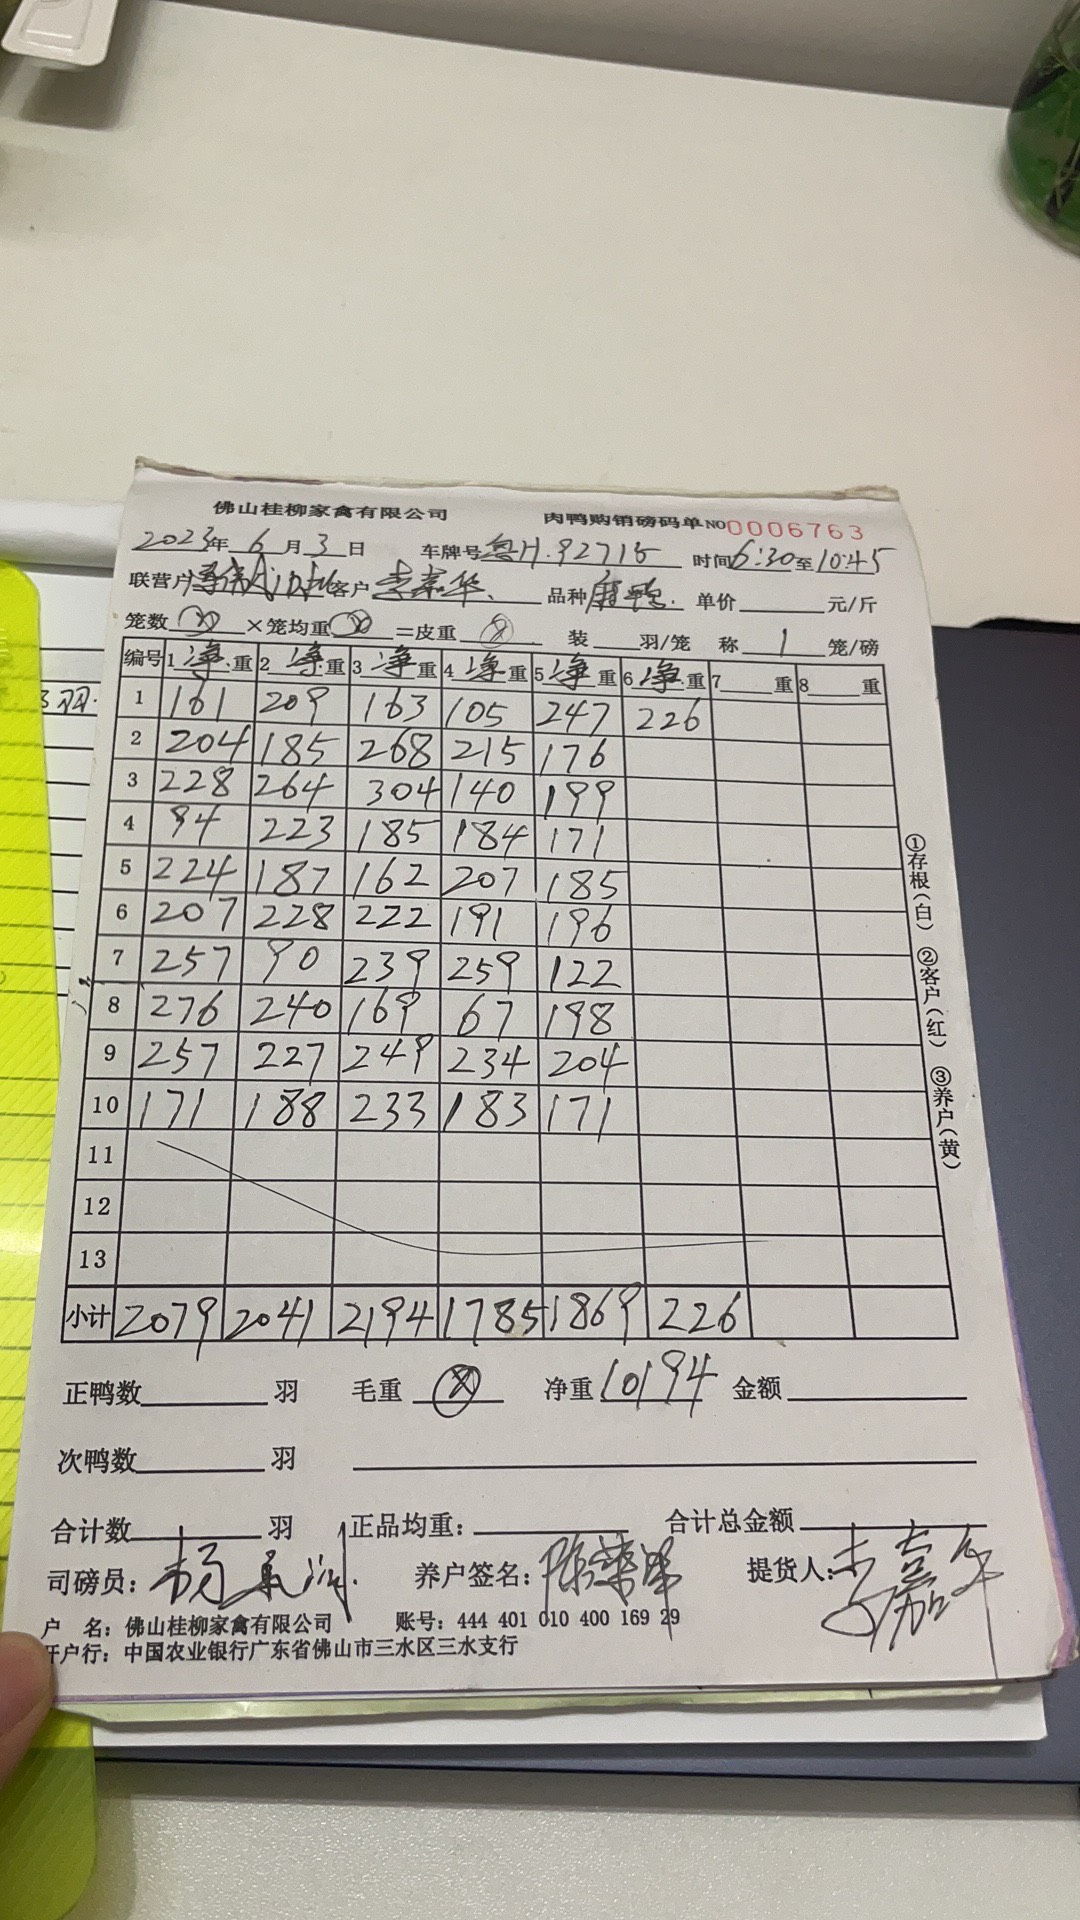 佛山桂柳家禽有限公司 肉鸭购销磅码单 NO 0006763
2023年 6 月 3 日 车牌号 粤H.92715 时间 6:30 至 10:45
联营户 客户 李嘉华 品种 麻鸭. 单价 元/斤
笼数 ×笼均重 =皮重 装 羽/笼 称 1 笼/磅
编号 1 净重 2 净重 3 净重 4 净重 5 净重 6 净重 7 重 8 重
1 161 209 163 105 247 226
2 204 185 268 215 176
3 228 264 304 140 199
3羽.
4 94 223 185 184 171
5 224 187 162 207 185
6 207 228 222 191 196
7 257 90 239 259 122
8 276 240 169 67 198
9 257 227 249 234 204
10 171 188 233 183 171
11
12
13
小计 2079 2041 2194 1785 1869 226
①存根(白) ②客户(红) ③养户(黄)
正鸭数 羽 毛重 净重 10194 金额
次鸭数 羽
合计数 羽 正品均重: 合计总金额
司磅员: 杨 养户签名: 陈荣 提货人: 李嘉华
户 名: 佛山桂柳家禽有限公司 账号: 444 401 010 400 169 29
开户行: 中国农业银行广东省佛山市三水区三水支行